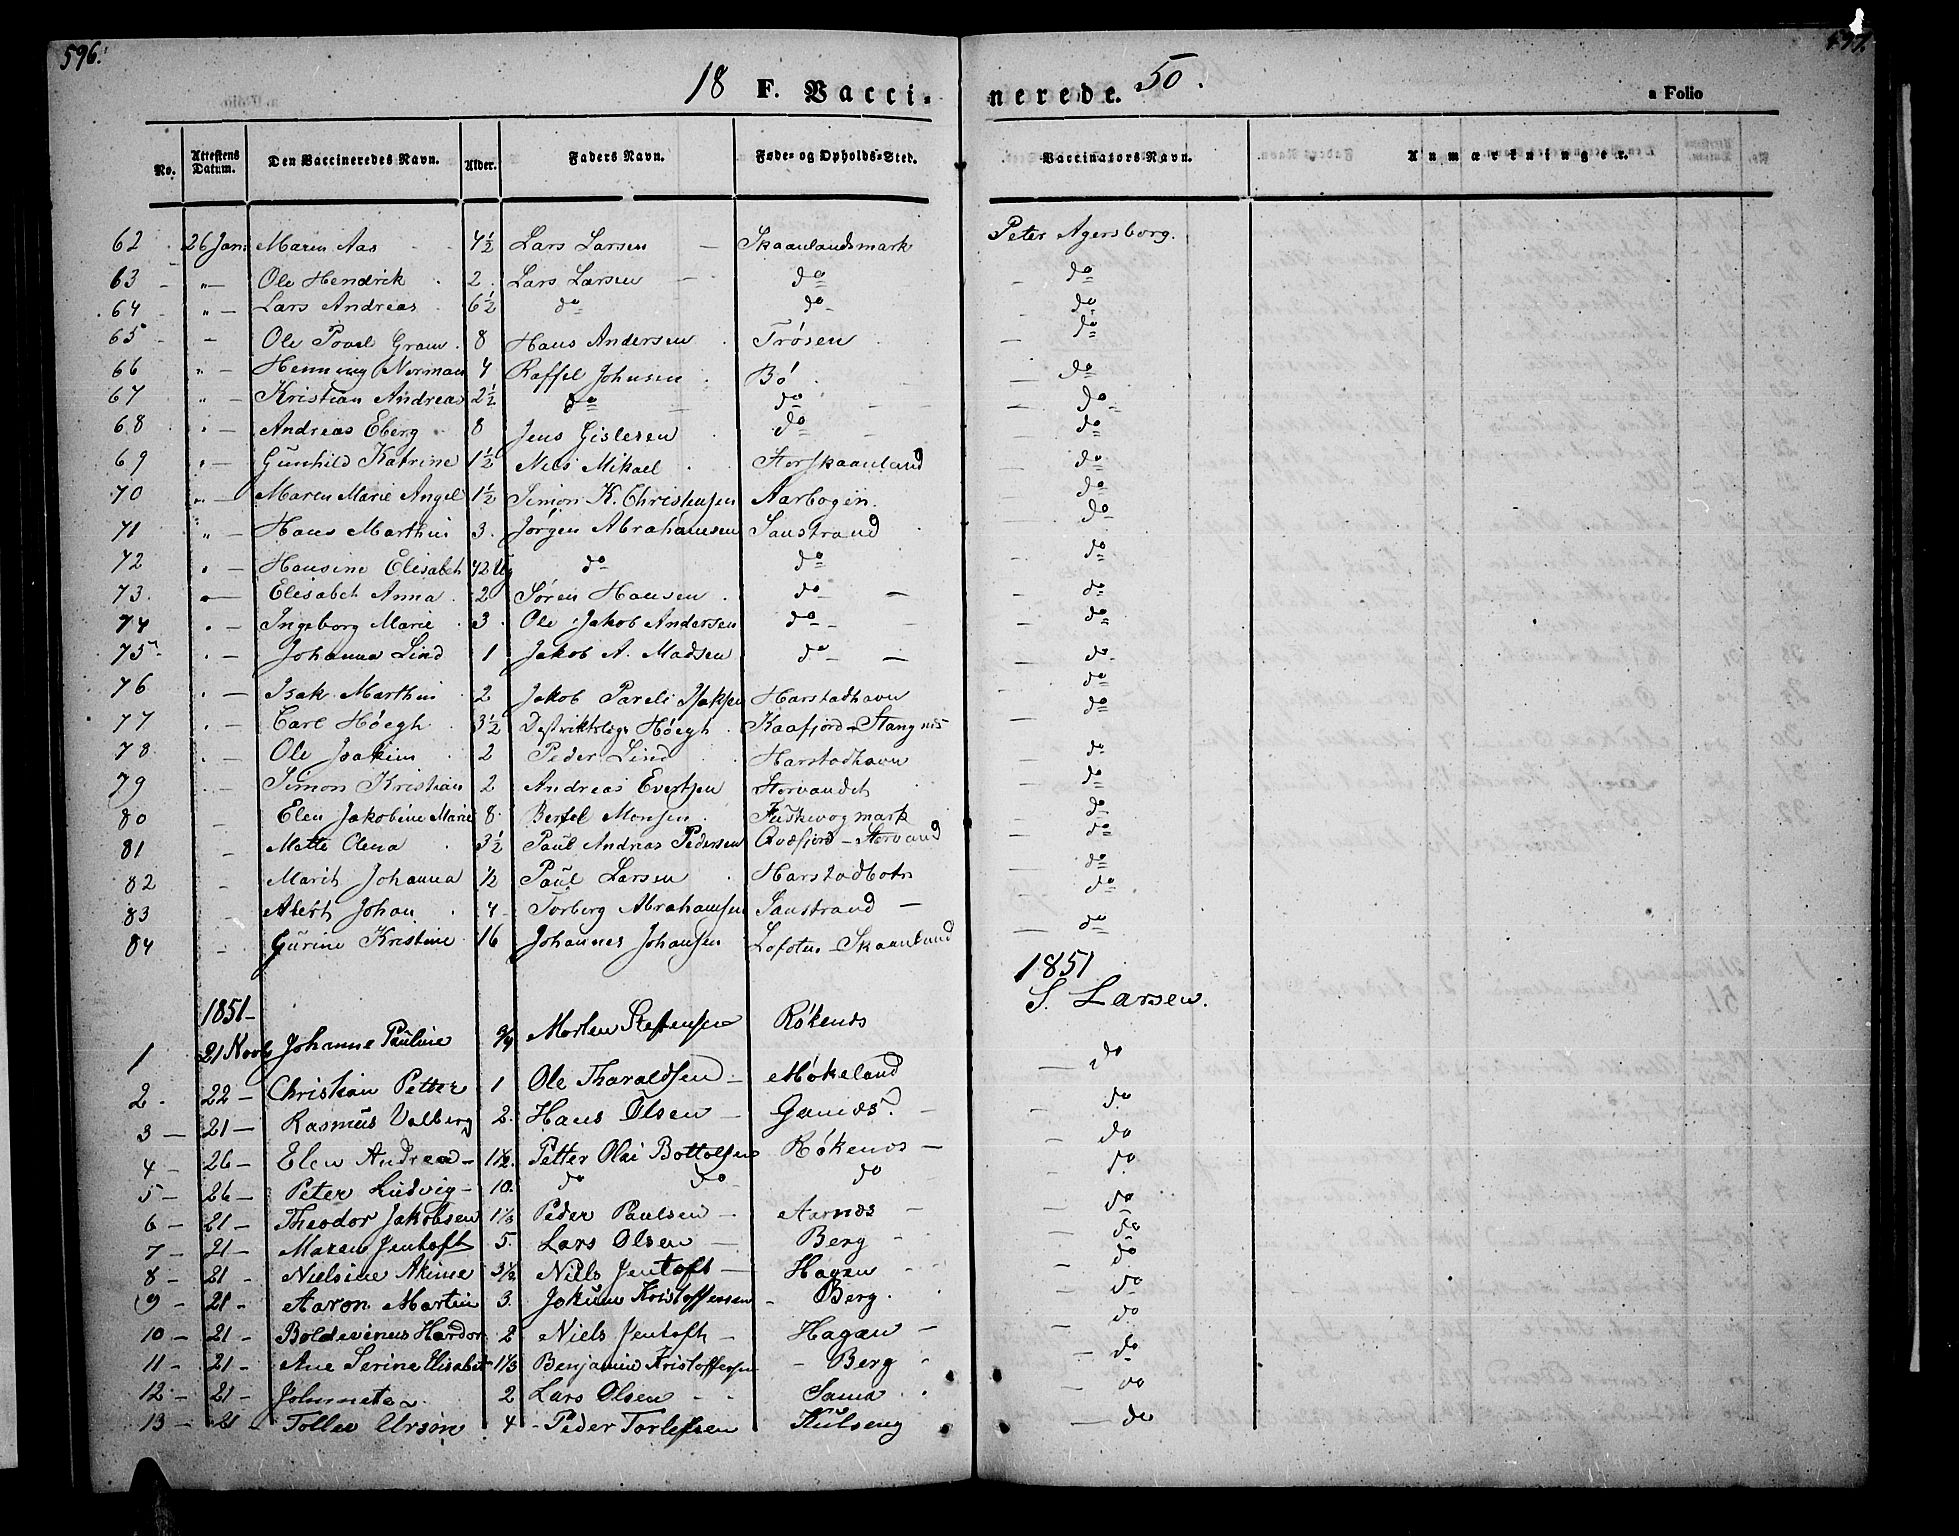 596.
18 F. Vacci-nerede. 50.
a Folio
No. Attestens Datum. Den Vaccineredes Navn. Alder. Faders Navn. Føde- og Opholds-Sted. Vaccinators Navn. Anmærkninger.
62 26 Jan. Maren Aas 4½ Lars Larsen — Skaanlandsmark Peter Agersborg.
63 - „— Ole Hendrik 2. Lars Larsen — do — do
64 - „— Lars Andreas 6½ do do - do
65 - — Ole Povel Gram. 8 Hans Andersen Trøsen — do
66 „— Henning Norman 4 Raffel Johnsen Bø — do
67 „— Kristian Andreas 2½ do — do — do
68 „— Andreas Eberg 8 Jens Gislesen do — do
69 „— Gunhild Katrine 1½ Nils Mikael Storskaanland — do
70 „— Maren Marie Angel 1½ Simon K. Christensen Aarbogen — do
71 „— Hans Marthin 3. Jørgen Abrahamsen Sanstrand — do
72 „— Hansine Elisabet 42 Ug do do — do
73. „— Elisabet Anna 2 Søren Hansen do — do
74 „— Ingeborg Marie 3. Ole Jakob Andersen do — do
75. „— Johanna Lind 1 Jakob A. Madsen do — do
76 „— Isak Marthin 2 Jakob Pareli Isaksen Harstadhavn — do
77 „— Carl Høegh 3½ Destriktslege Høegh Kaafjord - Stangnes — do
78 „— Ole Joakim 2 Peder Lind Harstadhavn — do
79 — Simon Kristian 2 Andreas Evertsen Storvandet — do
80 — Elen Jakobine Marie 8. Bertel Monsen Fuskevogmark — do
81 — Mette Olena 3½ Paul Andreas Pedersen Qvæfjord - Storvand — do
82 — Marit Johanna ½ Paul Larsen Harstadbotn — do
83 — Albert Johan 4 Torberg Abrahamsen Sanstrand — do
84 — Gurine Kristine 16 Johannes Johansen Lofoten - Skaanland — do
1851- 1851
1 21 Novb Johanne Pauline 9/4 Morten Steffensen Røkenes S. Larsen.
2. 22 — Christian Petter 1 Ole Tharaldsen — Møkeland — do
3 — 21 — Rasmus Valberg 2. Hans Olsen — Ganses. — do
4 — 26 — Elen Andrea — 1½. Petter Olai Bottolfsen Røkenes — do
5 — 26 — Peter Ludvig — 10. do do do — do
6 — 21 — Theodor Jakobsen 1⅓ Peder Paulsen — Aarnes — do
7 — 21 — Maren Jentoft 5. Lars Olsen — Berg — do
8 — 21 - Nielsine Akime 3½ Niels Jentoft — Hagen — do
9 — 21 - Aaron Martin 3. Jokum Kristoffersen - Berg. — do
10 — 21 - Boldevinus Hardor 2 Niels Jentoft — Hagan — do
11 — 21 - Ane Serine Elisabet 1⅓ Benjamin Kristoffersen - Berg — do
12 - 21 - Johnneta 2 Lars Olsen - Sama — do
13 — 21 Tolles Ursin 4 - Peder Torlefsen Kulseng — do